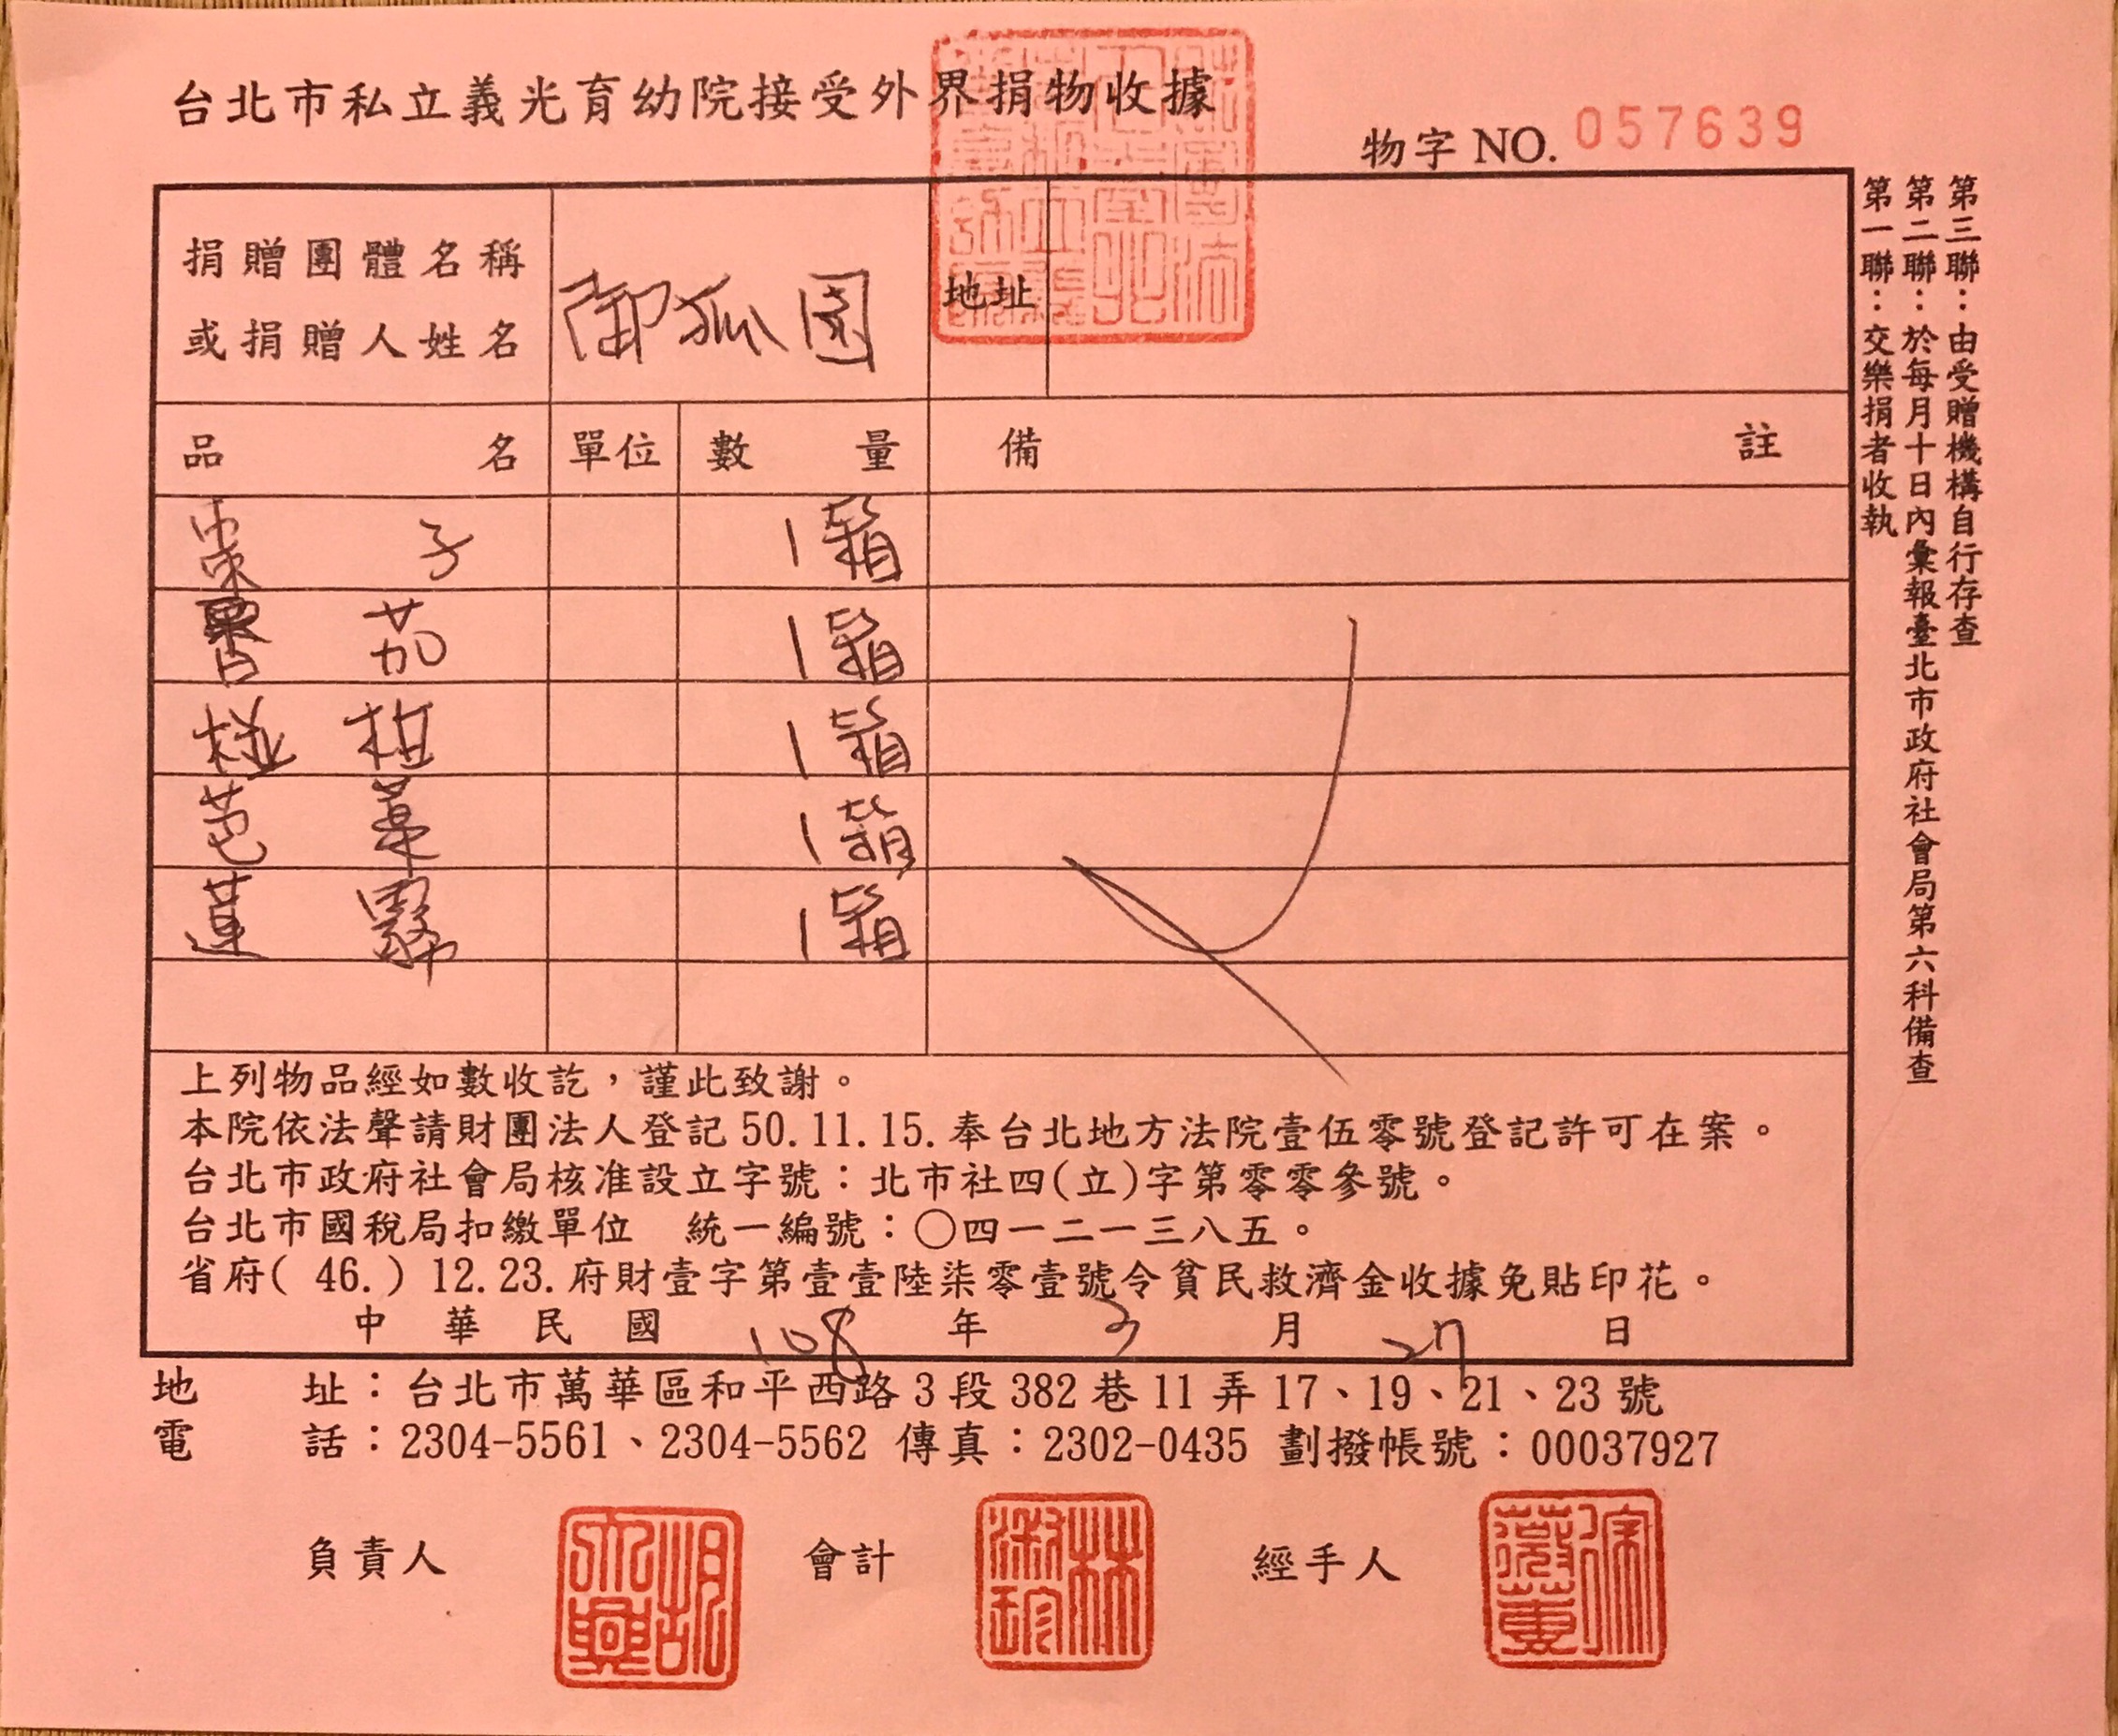 台北市私立義光育幼院接受外界捐物收據
物字 NO. 057639
捐贈團體名稱
或捐贈人姓名
御狐園
地址
品名 單位 數量 備註
棗子 1箱
番茄 1箱
椪柑 1箱
芭菓 1箱
蓮霧 1箱
上列物品經如數收訖，謹此致謝。
本院依法聲請財團法人登記50.11.15.奉台北地方法院壹伍零號登記許可在案。
台北市政府社會局核准設立字號：北市社四(立)字第零零參號。
台北市國稅局扣繳單位 統一編號：〇四一二一三八五。
省府( 46.) 12.23.府財壹字第壹壹陸柒零壹號令貧民救濟金收據免貼印花。
中華民國 108 年 3 月 27 日
地址：台北市萬華區和平西路3段382巷11弄17、19、21、23號
電話：2304-5561、2304-5562 傳真：2302-0435 劃撥帳號：00037927
負責人 會計 林淑珍 經手人
第三聯：由受贈機構自行存查
第二聯：於每月十日內彙報臺北市政府社會局第六科備查
第一聯：交樂捐者收執